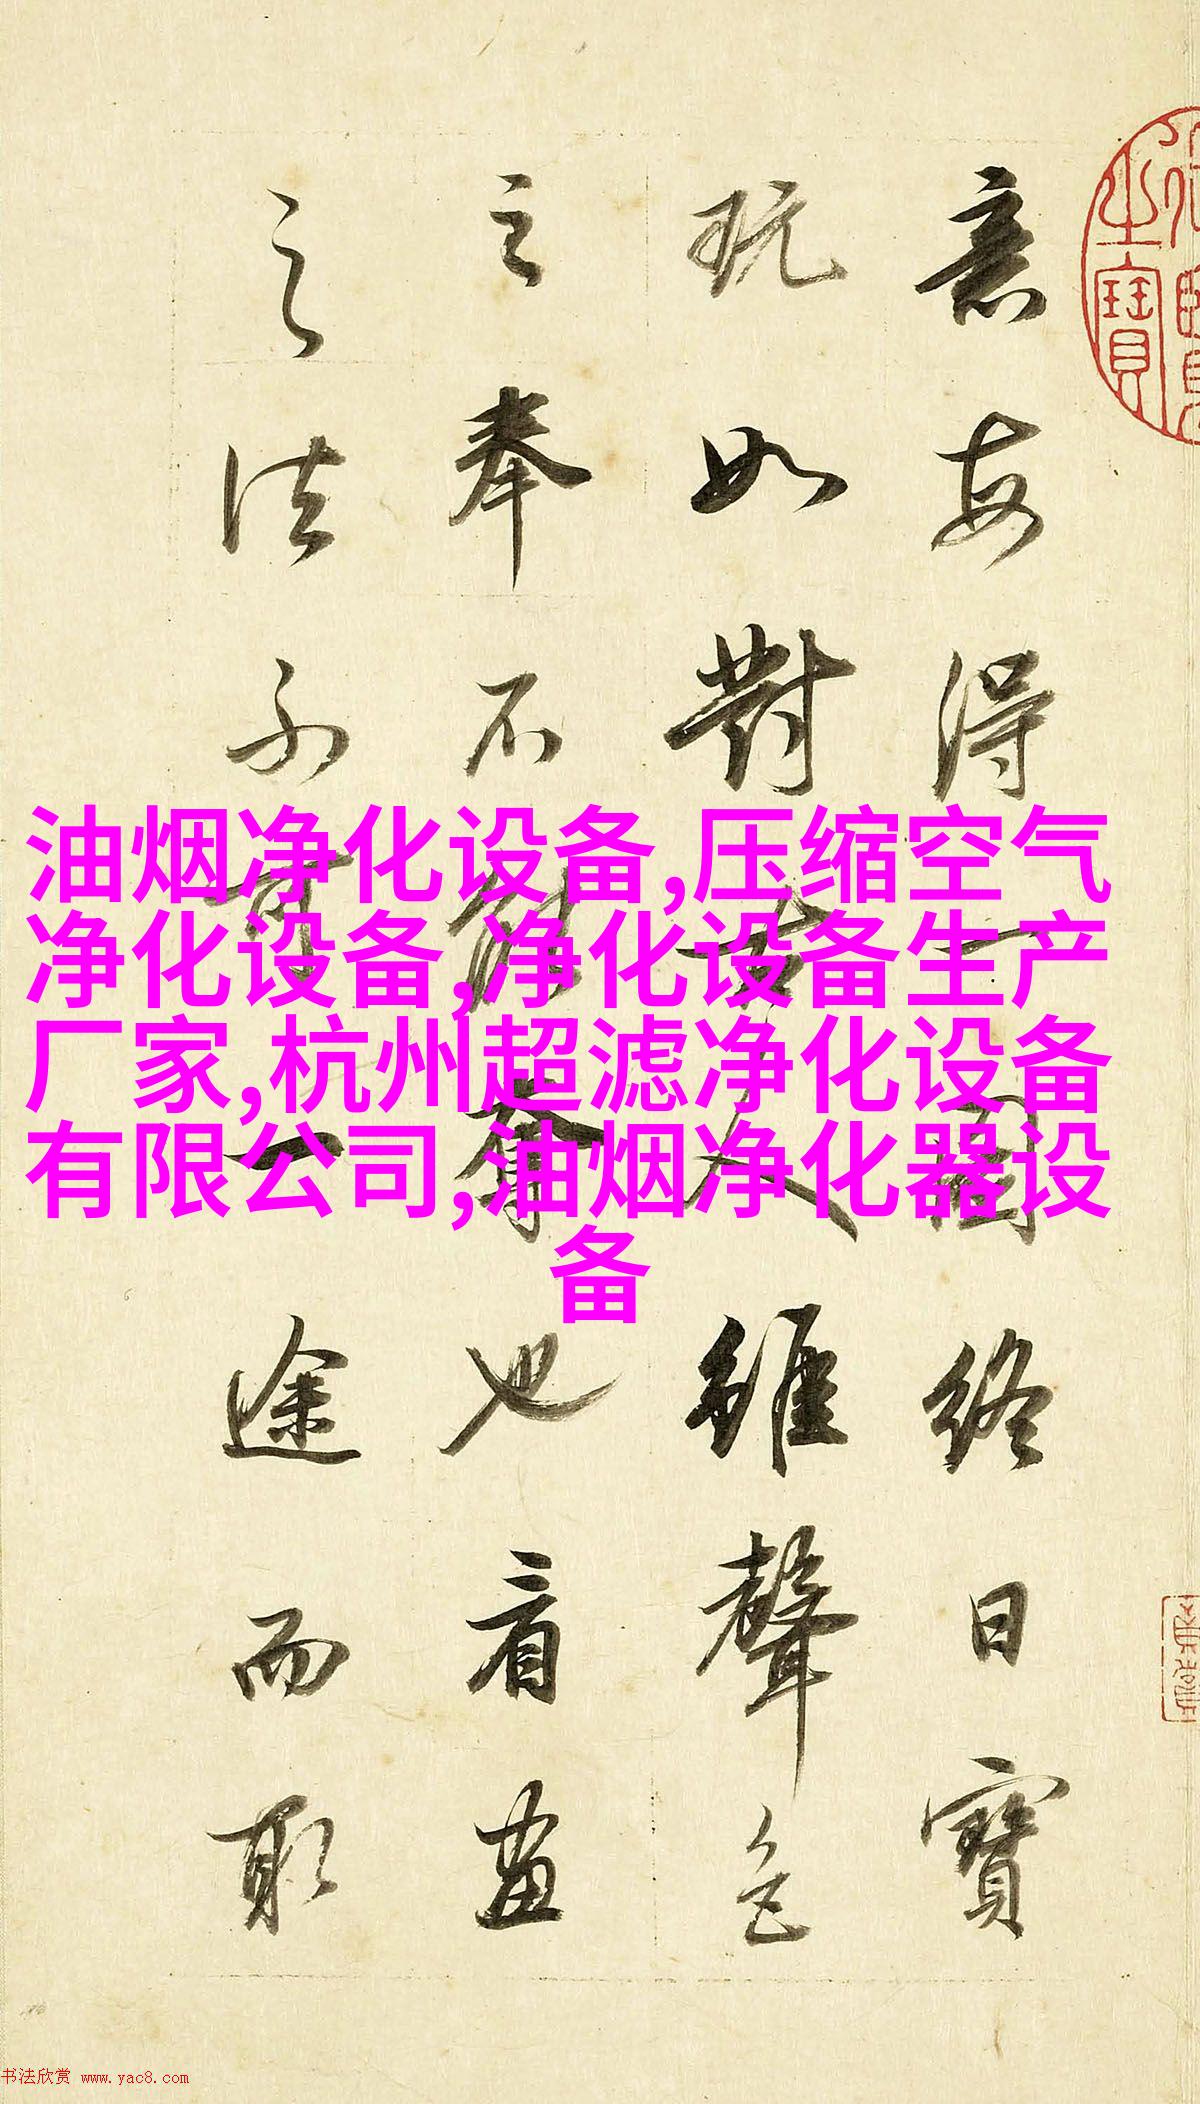 意每得一圖終日寶
玩如對古人雖聲色
之奉不能奪也看畫
之法不可一途而取
油烟净化设备,压缩空气
净化设备,净化设备生产
厂家,杭州超滤净化设备
有限公司,油烟净化器设
备
书法欣赏 www.yac8.com